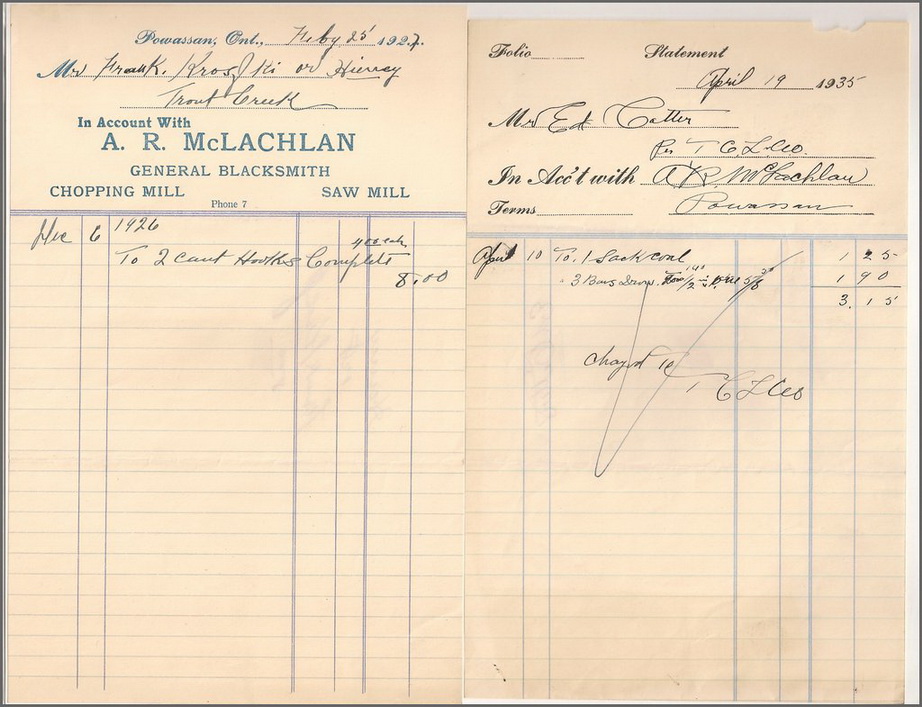 Powassan, Ont., Feby 25 1927.
Mr Frank. or
Trout Creek
In Account With
A. R. McLACHLAN
GENERAL BLACKSMITH
CHOPPING MILL SAW MILL
Phone 7
Dec 6 1926
4.00 each
To 2 cant Hooks Complete
8.00
Folio Statement
April 19 1935
Mr Ed Cotter
Per T C. L. Co.
In Acc't with A R. McLachlan
Terms Powassan
April 10 To. 1 Sack coal 1 25
3 Bars 1 90
3. 15
T C L Co